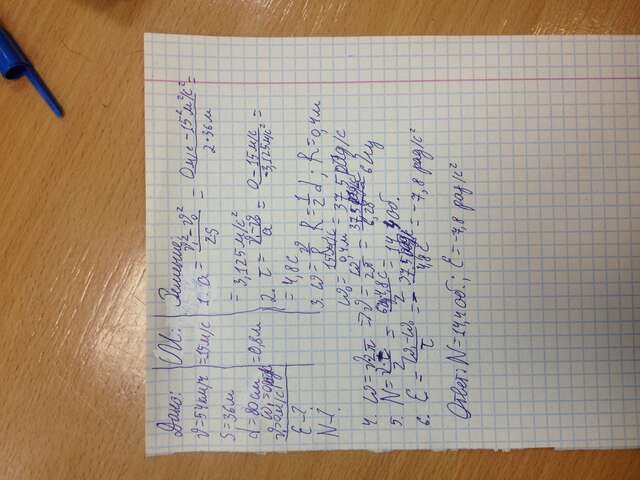 Дано:
υ = 54 км/ч
S = 36 м
d = 80 см
υ₁ = 0 м/с
E - ?
N - ?
СИ:
= 15 м/с
= 0,8 м
Решение:
1. a = (υ₁² - υ₀²)/(2S) = (0 м/с - 15² м²/с²)/(2·36 м) =
= 3,125 м/с²
2. τ = (υ₁ - υ₀)/a = (0 - 15 м/с)/(-3,125 м/с²) =
= 4,8 с
3. ω = υ/R R = 1/2 d; R = 0,4 м
ω₀ = (15 м/с)/(0,4 м) = 37,5 рад/с
4. ω = υ2π => υ = ω/2π = 37,5 рад/с / 6,28 = 6 Гц
5. N = υ·τ/2 = 6·4,8 с/2 = 14,4 об.
6. E = (ω₁ - ω₀)/τ = - 37,5 рад/с / 4,8 с = -7,8 рад/с²
Ответ: N = 14,4 об.; E = -7,8 рад/с²